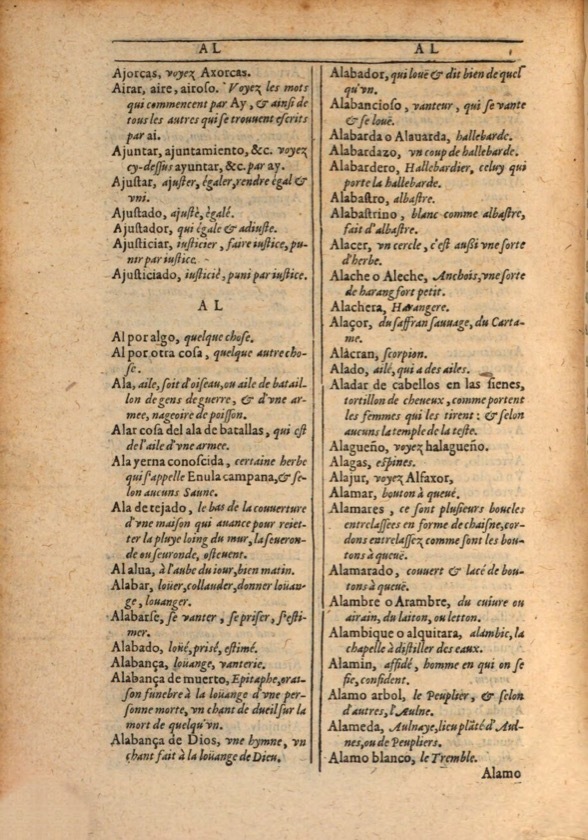 AL
Ajorcas, voyez Axorcas.
Airar, aire, airoso. Voyez les mots
qui commencent par Ay, & ainsi de
tous les autres qui se trouuent escrits
par ai.
Ajuntar, ajuntamiento, &c. voyez
cy-dessus ayuntar, &c. par ay.
Ajustar, ajuster, égaler, rendre égal &
vni.
Ajustado, ajustè, ègalé.
Ajustador, qui égale & adiuste.
Ajusticiar, iusticier, faire iustice, pu-
nir par iustice.
Ajusticiado, iusticiè, puni par iustice.
AL
Al por algo, quelque chose.
Al por otra cosa, quelque autre cho-
se.
Ala, aile, soit d'oiseau, ou aile de batail-
lon de gens de guerre, & d'vne ar-
mee, nageoire de poisson.
Alar cosa del ala de batallas, qui est
de l'aile d'vne armee.
Ala yerna conoscida, certaine herbe
qui s'appelle Enula campana, & se-
lon aucuns Saune.
Ala de tejado, le bas de la couuerture
d'vne maison qui auance pour reiet-
ter la pluye loing du mur, la seueron-
de ou seuronde, osteuent.
Al alua, à l'aube du iour, bien matin.
Alabar, loüer, collauder, donner loüan-
ge, louanger.
Alabarse, se vanter, se priser, s'esti-
mer.
Alabado, loüé, prisé, estimé.
Alabança, loüange, vanterie.
Alabança de muerto, Epitaphe, orai-
son funebre à la loüange d'vne per-
sonne morte, vn chant de dueil sur la
mort de quelqu'vn.
Alabança de Dios, vne hymne, vn
chant fait à la loüange de Dieu.
AL
Alabador, qui louë & dit bien de quel
qu'vn.
Alabancioso, vanteur, qui se vante
& se louë.
Alabarda o Alauarda, hallebarde.
Alabardazo, vn coup de hallebarde.
Alabardero, Hallebardier, celuy qui
porte la hallebarde.
Alabastro, albastre.
Alabastrino, blanc comme albastre,
fait d'albastre.
Alacer, vn cercle, c'est außi vne sorte
d'herbe.
Alache o Aleche, Anchois, vne sorte
de harang fort petit.
Alachera, Harangere.
Alaçor, du saffran sauuage, du Carta-
me.
Alàcran, scorpion.
Alado, ailé, qui a des ailes.
Aladar de cabellos en las sienes,
tortillon de cheueux, comme portent
les femmes qui les tirent: & selon
aucuns la temple de la teste.
Alagueño, voyez halagueño.
Alagas, espines.
Alajur, voyez Alfaxor,
Alamar, bouton à queuë.
Alamares, ce sont plusieurs boucles
entrelassées en forme de chaisne, cor-
dons entrelassez comme sont les bou-
tons à queuë.
Alamarado, couuert & lacé de bou-
tons à queuë.
Alambre o Arambre, du cuiure ou
airain, du laiton, ou letton.
Alambique o alquitara, alambic, la
chapelle à distiller des eaux.
Alamin, affidé, homme en qui on se
fie, confident.
Alamo arbol, le Peuplier, & selon
d'autres, l'Aulne.
Alameda, Aulnaye, lieu plãté d'Aul-
nes, ou de Peupliers.
Alamo blanco, le Tremble.
Alamo